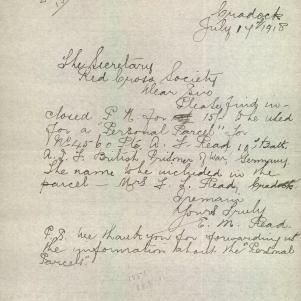 Cradock
July 14th 1918
The Secretary
Red Cross Society
Dear Sir
Please find in-
closed P. N. for 15/- to be used
for a "Personal Parcel" for
No 4560 Pte A. F. Flead 10th Batt.
A. I. F. British Prisoner of War, Germany.
The name to be included in the
parcel — Mrs F. J. Flead, Cradock
I remain
Yours Truly
E. M. Flead.
P.S. We thank you for forwarding us
the information about the "Personal
Parcels"